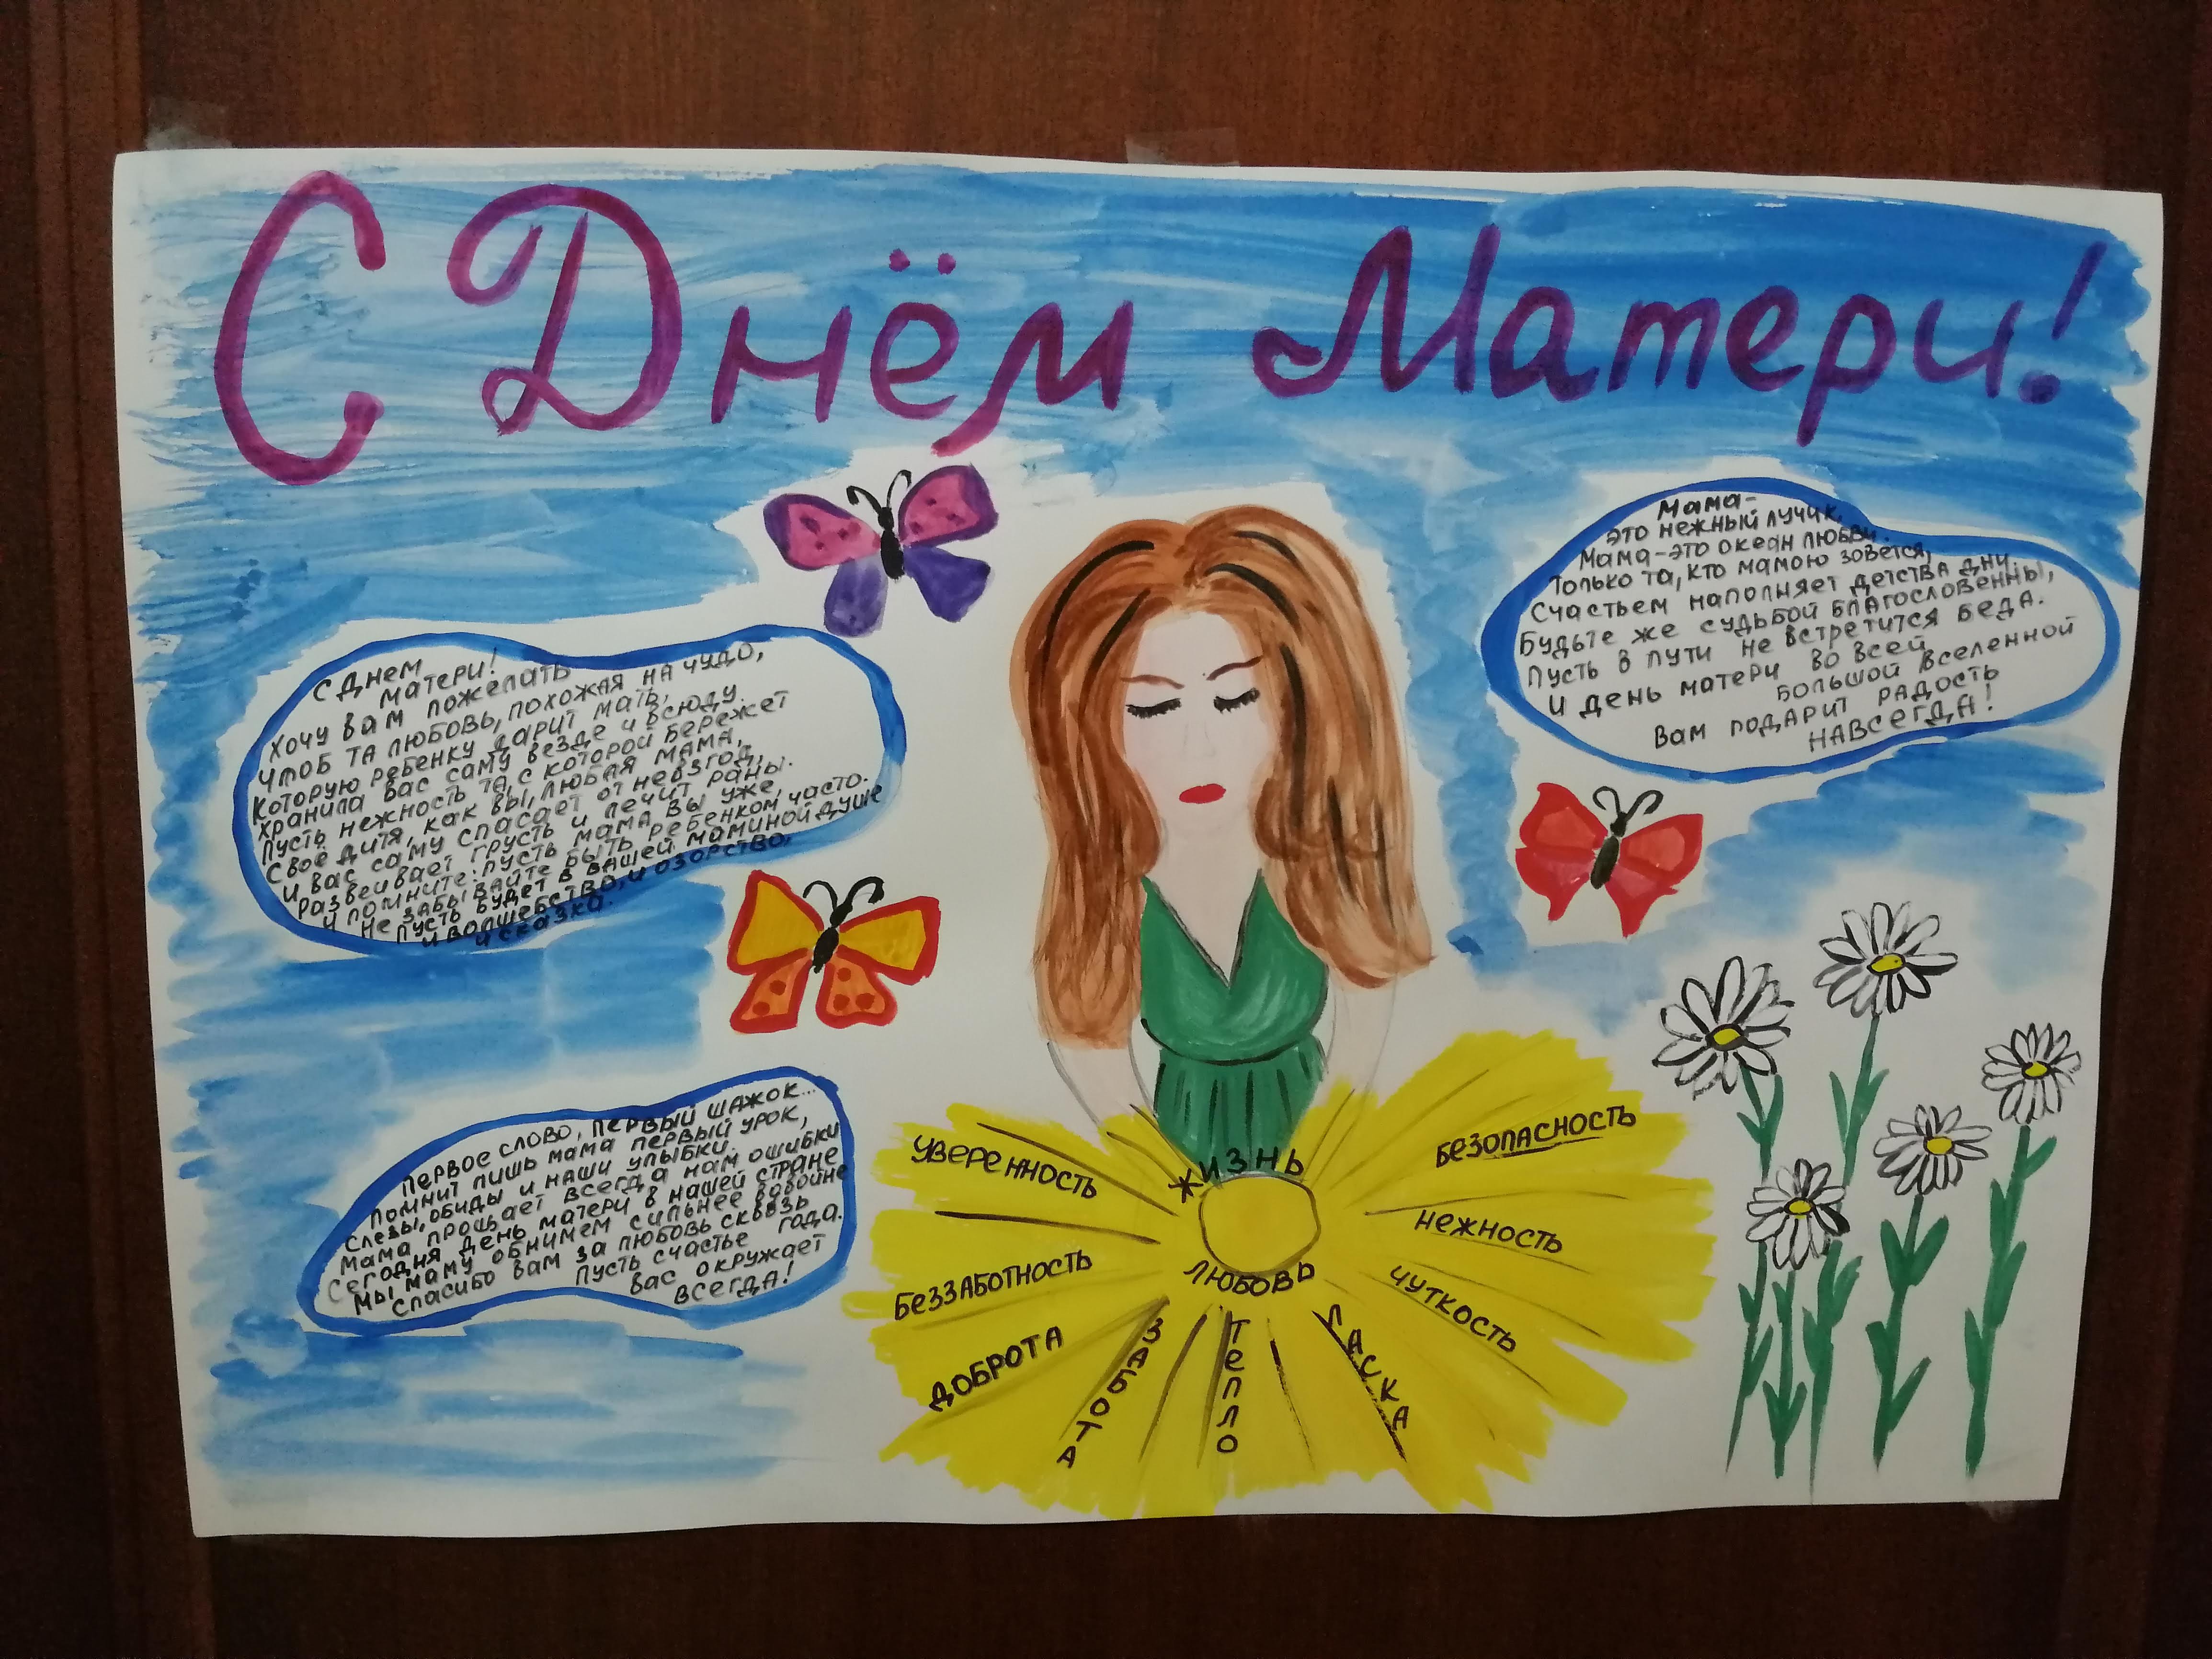 С Днём Матери!
Мама-
это нежный лучик,
Мама-это океан любви.
Только та, кто мамою зовется,
Счастьем наполняет детства дни.
Будьте же судьбой благословенны,
Пусть в пути не встретится беда.
И день матери во всей
большой вселенной
Вам подарит радость
НАВСЕГДА!
С днем
матери!
Хочу вам пожелать
Чтоб та любовь, похожая на чудо,
Которую ребенку дарит мать,
Хранила вас саму везде и всюду.
Пусть нежность та, с которой бережет
Свое дитя, как вы, любая мама,
И вас саму спасает от невзгод,
Развеивает грусть и лечит раны.
И помните: пусть мама вы уже,
Не забывайте быть ребенком часто.
Пусть будет в вашей маминой душе
И волшебство, и озорство,
и сказка.
Первое слово, первый шажок...
Помнит лишь мама первый урок,
Слезы, обиды и наши улыбки.
Мама прощает всегда нам ошибки
Сегодня день матери в нашей стране
Мы маму обнимем сильнее вдвойне
Спасибо вам за любовь сквозь
года.
Пусть счастье
вас окружает
всегда!
УВЕРЕННОСТЬ
ЖИЗНЬ
БЕЗОПАСНОСТЬ
НЕЖНОСТЬ
БЕЗЗАБОТНОСТЬ
ЛЮБОВЬ
ЧУТКОСТЬ
ДОБРОТА
ЗАБОТА
ТЕПЛО
ЛАСКА